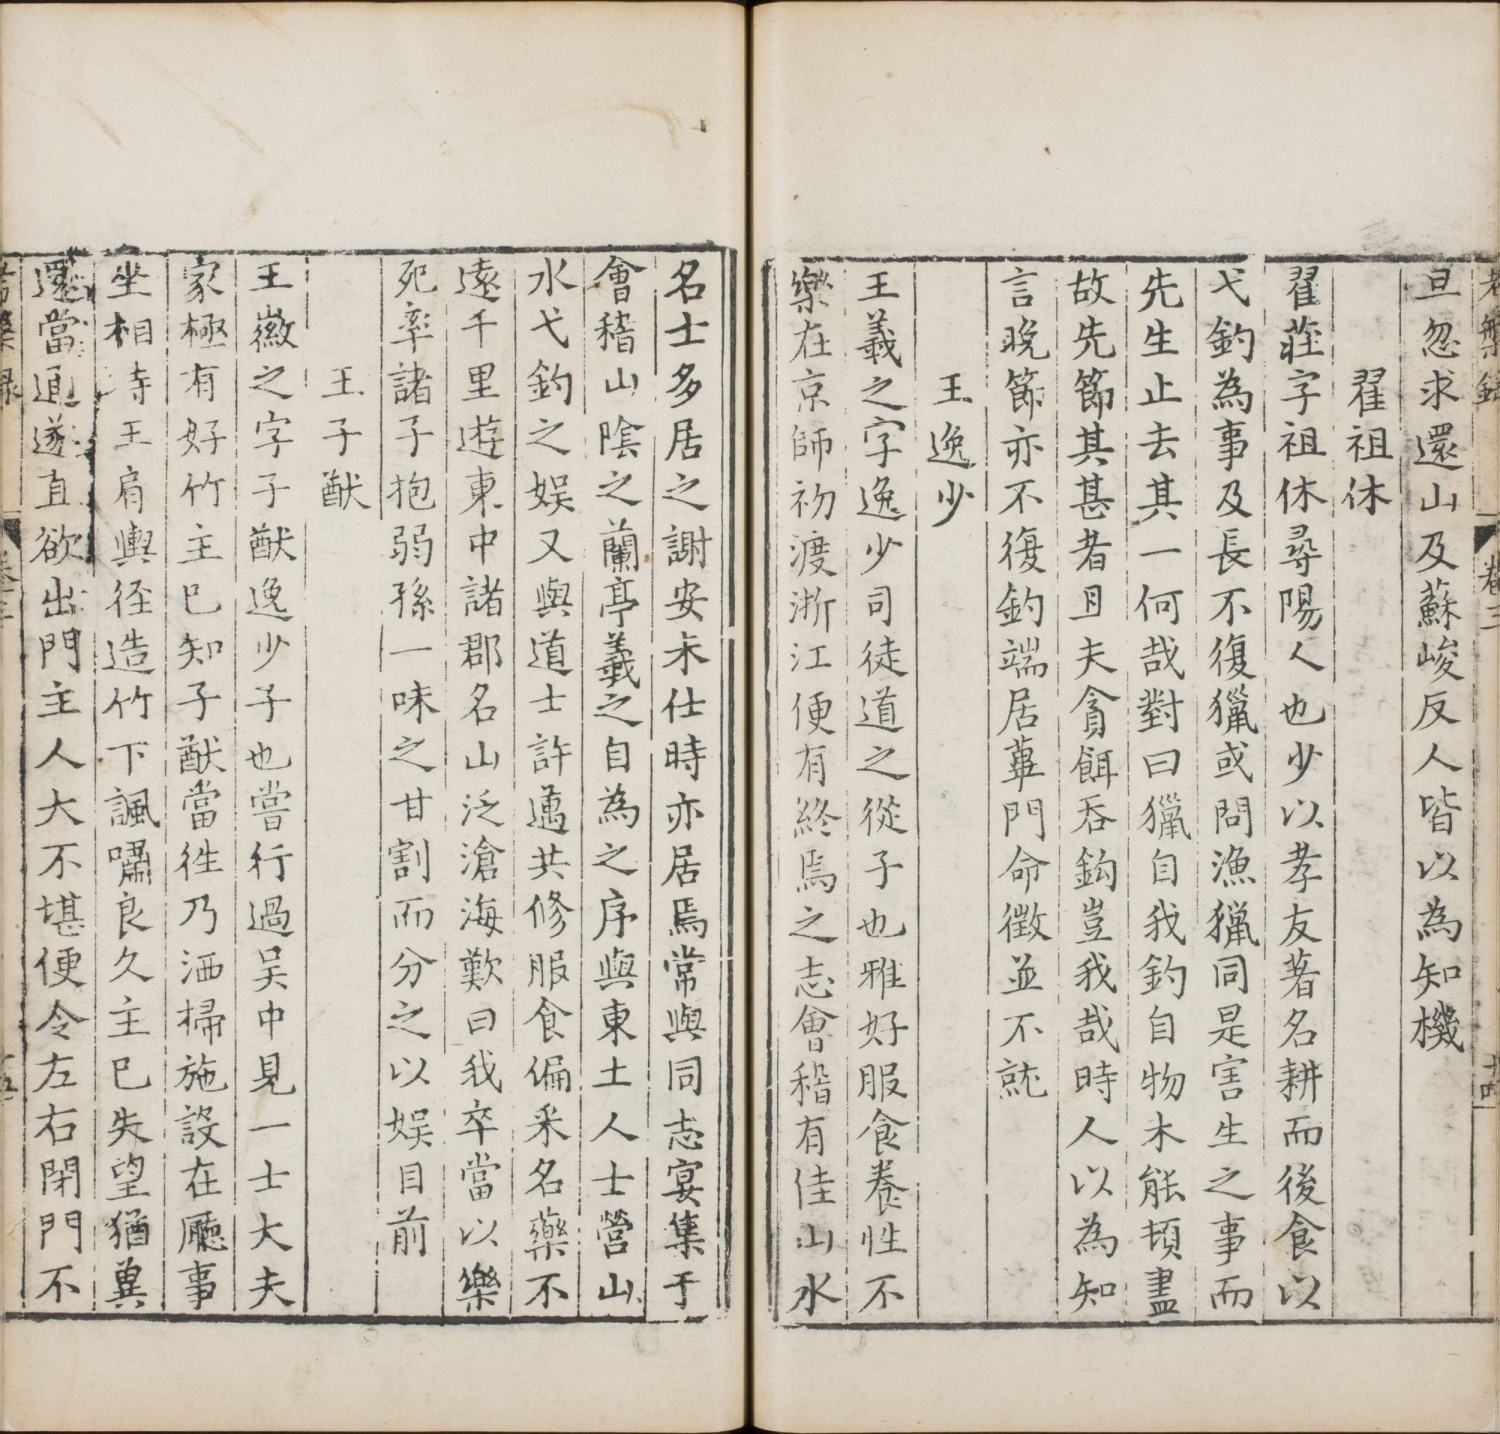 考槃錄 卷三 十四
旦忽求還山及蘇峻反人皆以為知機
翟祖休
翟莊字祖休尋陽人也少以孝友著名耕而後食以
弋釣為事及長不復獵或問漁獵同是害生之事而
先生止去其一何哉對曰獵自我釣自物未能頓盡
故先節其甚者且夫貪餌吞鈎豈我哉時人以為知
言晚節亦不復釣端居蓽門命徵並不就
王逸少
王羲之字逸少司徒道之從子也雅好服食養性不
樂在京師初渡浙江便有終焉之志會稽有佳山水
名士多居之謝安未仕時亦居焉常與同志宴集于
會稽山陰之蘭亭羲之自為之序與東土人士營山
水弋釣之娛又與道士許邁共修服食偏采名藥不
遠千里遊東中諸郡名山泛滄海歎曰我卒當以樂
死率諸子抱弱孫一味之甘割而分之以娛目前
王子猷
王徽之字子猷逸少子也嘗行過吳中見一士大夫
家極有好竹主已知子猷當徃乃洒掃施設在廳事
坐相待王肩輿徑造竹下諷嘯良久主已失望猶冀
還當通遂直欲出門主人大不堪便令左右閉門不
考槃錄 卷三 十五